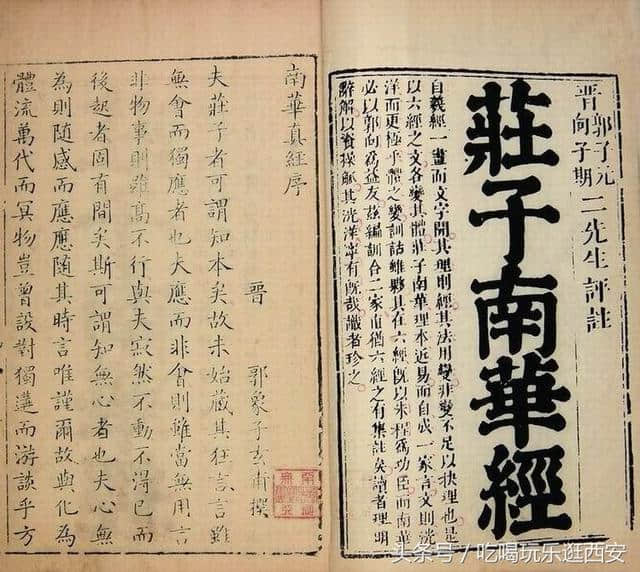 晋 郭子元 向子期 二先生評註
莊子南華經
自羲經一畫而文字開其理則經其法用變非變不足以抉理也是
以六經之文各變其體莊子南華理本近易而自成一家言文則洸
洋而更極乎體之變訓詁雖夥其在六經既以朱程為功臣而南華
必以郭向為益友茲編訓合二家直猶六經之有集註矣讀者理明
辭解以資操觚其洸洋寧有既哉識者珍之
南華真經序
晉 郭象子玄甫撰
夫莊子者可謂知本矣故未始藏其狂言言雖
無會而獨應者也夫應而非會則雖當無用言
非物事則雖高不行與夫寂然不動不得已而
後起者固有間矣斯可謂知無心者也夫心無
為則隨感而應應隨其時言唯謹爾故與化為
體流萬代而冥物豈曾設對獨遘而游談乎方
头条号/吃喝玩乐逛西安